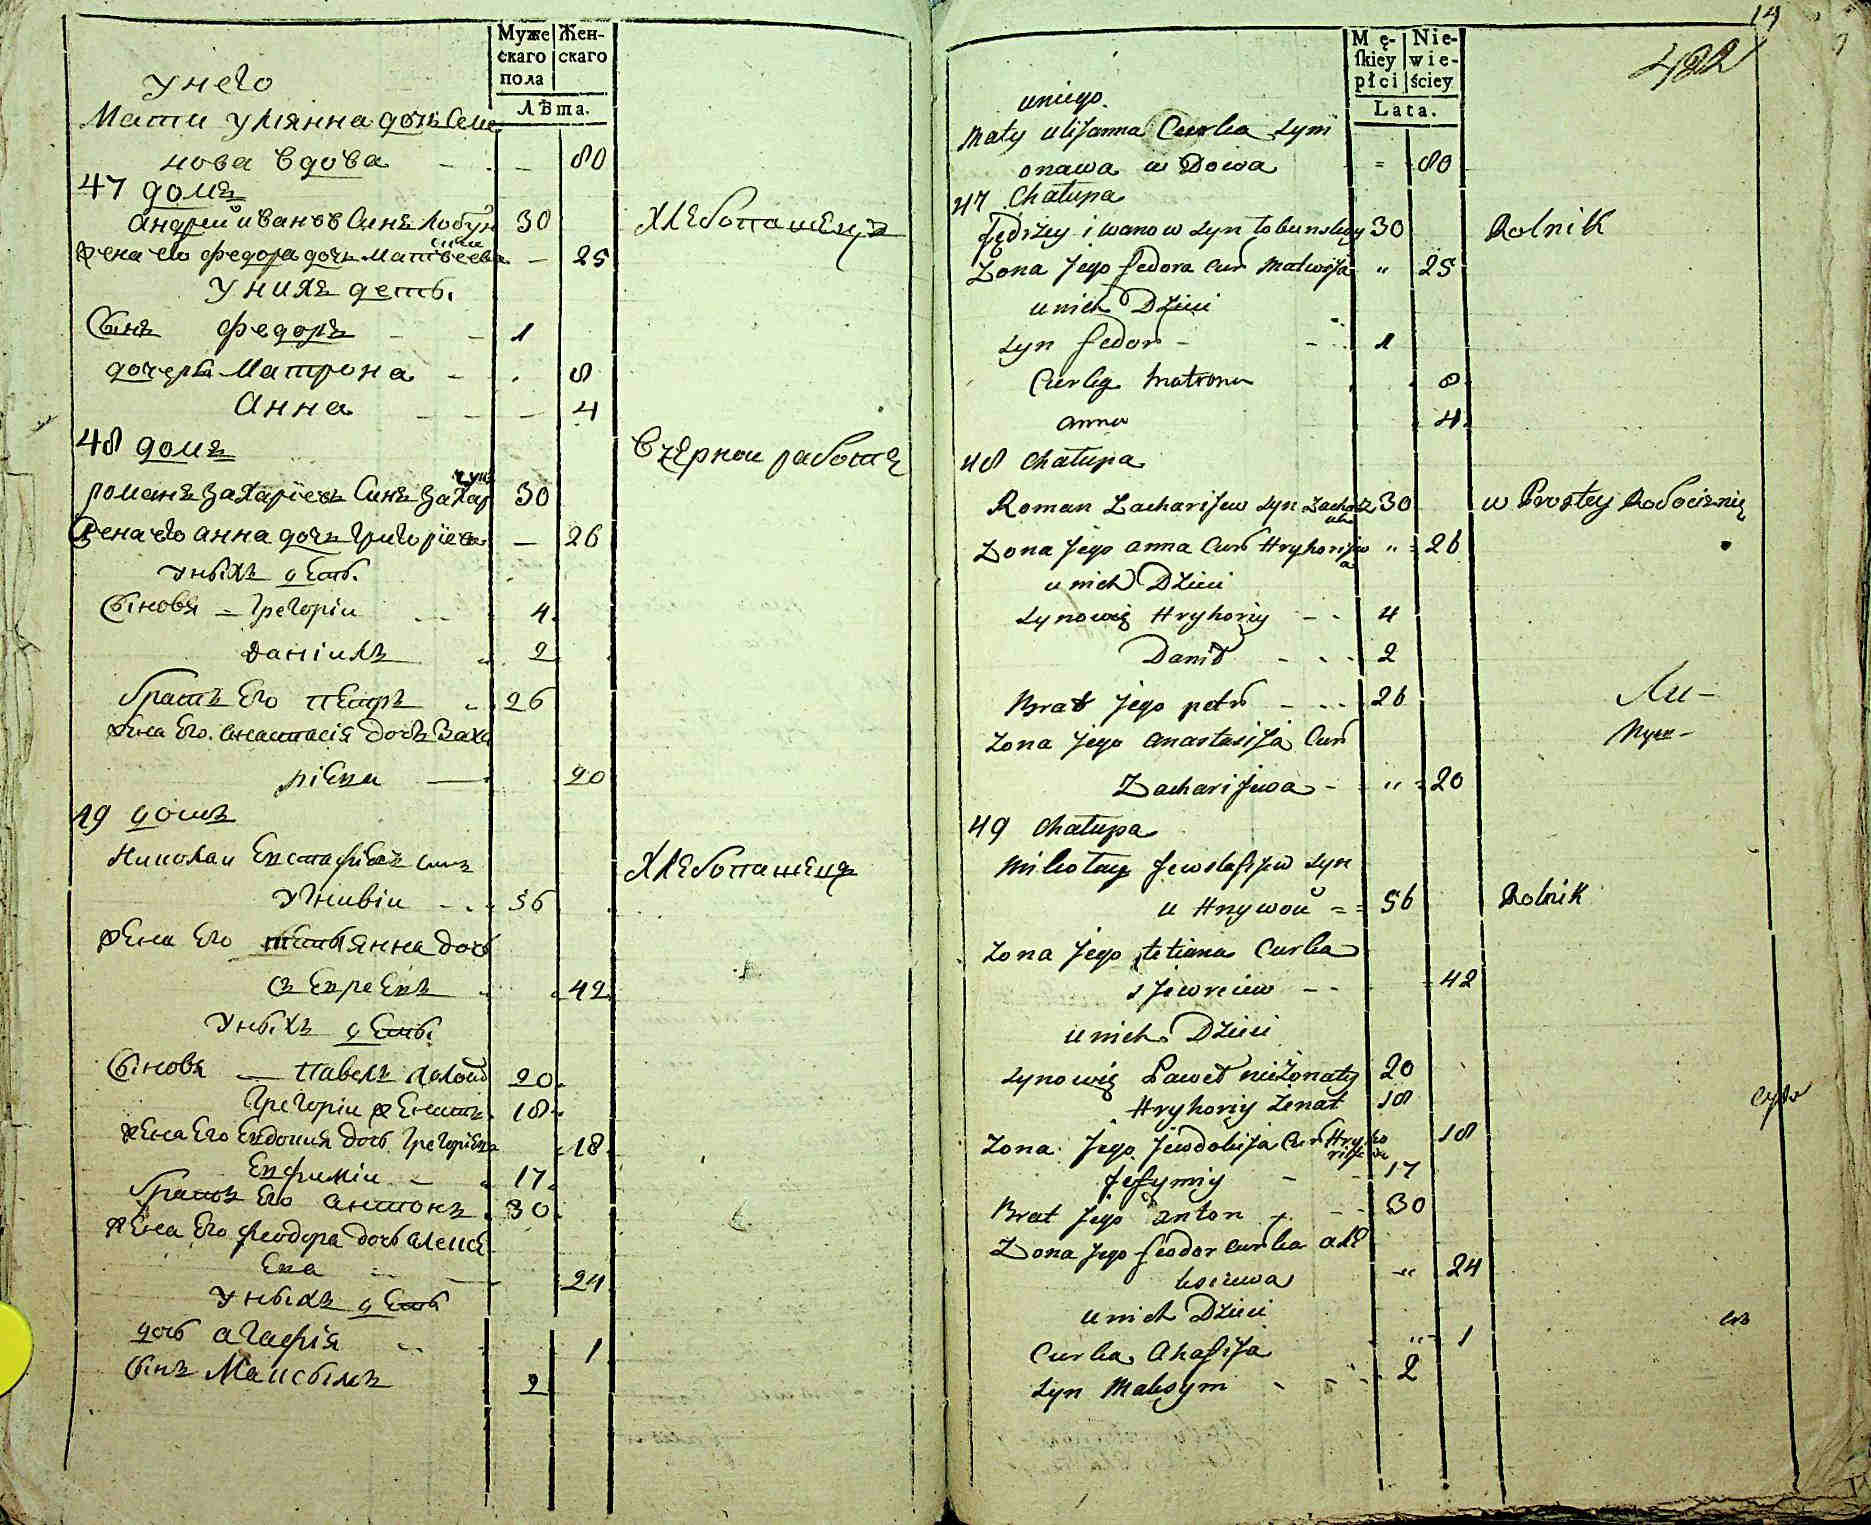 Муже
скаго
пола
Жен-
скаго
Лѣта.
У него
Мати Улiянна дочь Семе
нова вдова - - 80
47 домъ
Андрей Ивановъ Синъ Лобун 30 Хлебопашецъ
ский
Жена его Федора дочь Матвеева - 25
У нихъ дети.
Сынъ Федоръ - - 1
дочеръ Матрона - . 8
Анна - - - 4
48 домъ
В чернои работе
чукъ
романъ Захарiевъ Синъ Захар 30
Жена его анна дочъ Григорiева - 26
Уныхъ дети.
Сыновя - Грегорiи 4
Данiилъ 2
братъ Его петръ 26
Жена Его. Анастасiя дочъ Заха
рiева - 20
49 домъ
Николаи Евстафiевъ синъ Хлебопашецъ
Угнивiи - . - 56
Жена Его тетiянна дочь
съ Евреевъ 42
Уныхъ дети.
Сыновя - Павелъ холост 20
Грегорiи женатъ 18
жена Его Евдокия дочь Грегорiева 18
Евфимiи - 17
братъ Его Антонъ 30
жена Его феодора дочь алексе
Ева - 24
Уныхъ дети
дочь агафiя 1
Сынъ Максымъ 2
19
422
Mę-
skiey
płci
Nie-
wie-
ściey
Lata.
uniego.
Maty Ulijanna Curka Sym
onawa w Dowa = 80
47 Chałupa
Jędrzey iwanow Syn Łobunskiy 30 Rolnik
Zona Jego fedora Cur Matwija " 25
unich Dzieci
Syn fedor - - 1
Curkę Matrona 8
anna 4
48 Chałupa
Roman Zacharijew Syn Zachar 30 w Prostey Robociznie
uk
Zona Jego anna Cur Hryhorijw " 26
a
unich Dzieci
Synowię Hryhoriy - - 4
Danił - - - 2
Brat Jego petr - - - 26
Zona Jego anastasija Cur
Zacharijewa - " 20
49 Chałupa
Mikołay Jewstafijew Syn
u Hnywoii = = 56 Rolnik
Zona Jego tetiana Curka
s Jewreiew - - 42
unich Dzieci
Synowię Paweł nieżonaty 20
Hryhoriy żenat 18
Zona Jego Jewdokija Cur Hryho 18
Jefymiy - - 17
Brat Jego anton - - - 30
Zona Jego feodor curka ale
ksiewa " 24
unich Dzieci
Curka Ahafija " 1
Syn Maksym - - - 2
Ли-